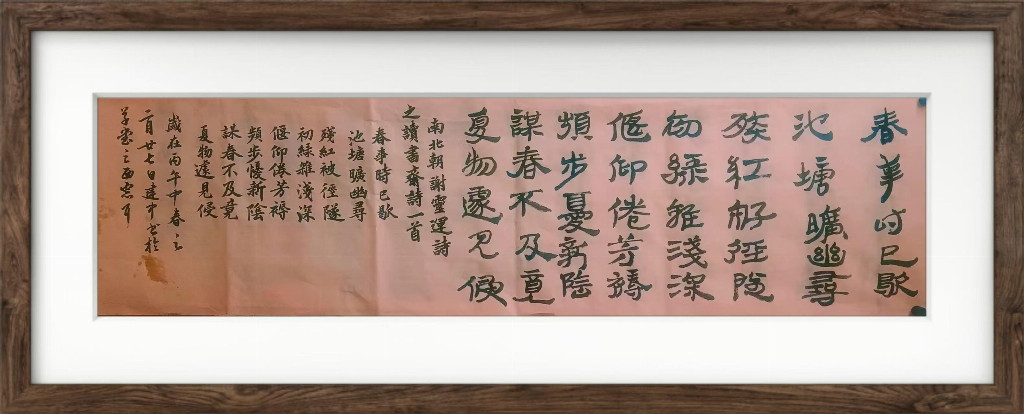 春事時已歇
池塘曠幽尋
殘紅被徑隧
初綠雜淺深
偃仰倦芳褥
頻步憂新陰
謀春不及竟
夏物遽見侵
南北朝謝靈運詩
之讀書齋詩一首
春事時已歇
池塘曠幽尋
殘紅被徑隧
初綠雜淺深
偃仰倦芳褥
頻步憂新陰
謀春不及竟
夏物遽見侵
歲在丙午中春之
二月廿七日建中书於
之西窗下